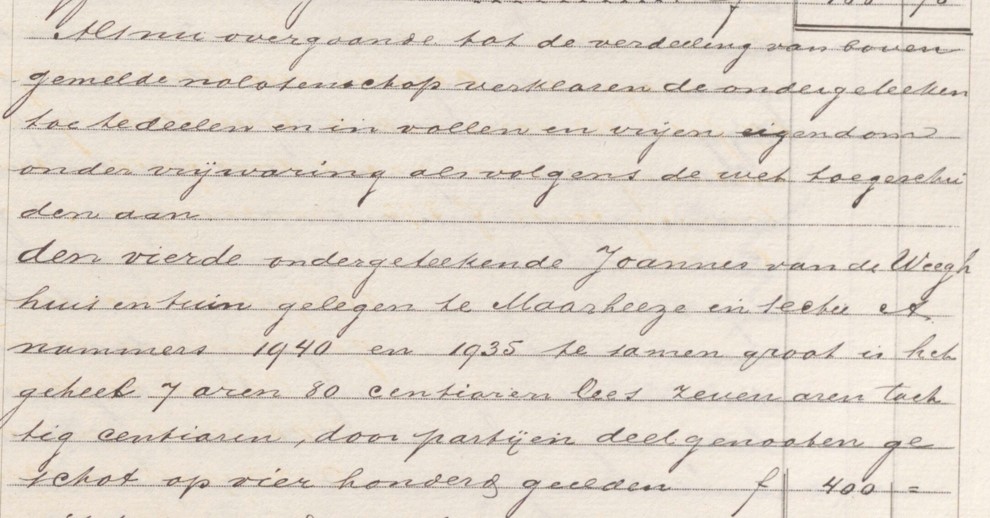 Als nu overgaande tot de verdeeling van boven
gemelde nalatenschap verklaren de ondergeteeken
toe te deelen en in vollen en vrijen eigendom
onder vrijwaring als volgens de wet toegeschei
den aan
den vierde ondergeteekende Joannes van de Weegh
huis en tuin gelegen te Maarheeze in sectie A
nummers 1940 en 1935 te samen groot in het
geheel 7 aren 80 centiaren lees zeven aren tach
tig centiaren, door partijen deelgenooten ge
schat op vier honderd gulden f 400 =